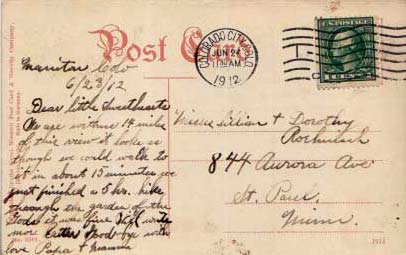 Post Card
COLORADO CITY, COLO.
JUN 24
1912
U.S. POSTAGE
Manitou Colo
6/23/12
Dear little Sweethearts
We are within 14 miles
of this view it looks as
though we could walk to
it in about 15 minutes we
just finished a 5 hrs. hike
through the garden of the
Gods it was fine will write
more later Good-bye with
love Papa + Mamma
Misses Lillian + Dorothy
844 Aurora Ave
St. Paul.
Minn.